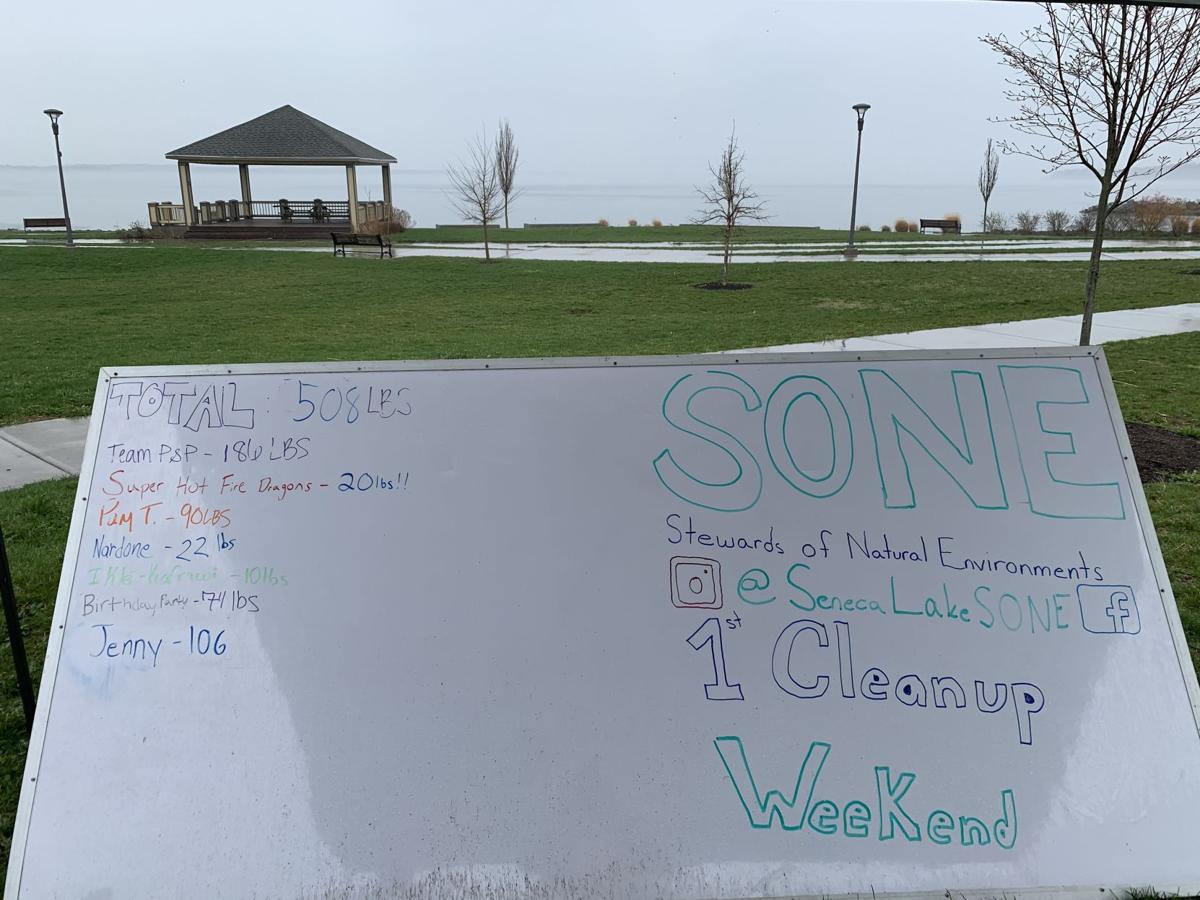 TOTAL: 508 LBS
Team P&P - 186 LBS
Super Hot Fire Dragons - 20lbs!!
Pam T. - 90LBS
Nardone - 22 lbs
- 10lbs
Birthday Party - 74 lbs
Jenny - 106
SONE
Stewards of Natural Environments
@SenecaLakeSONE f
1st Cleanup
Weekend